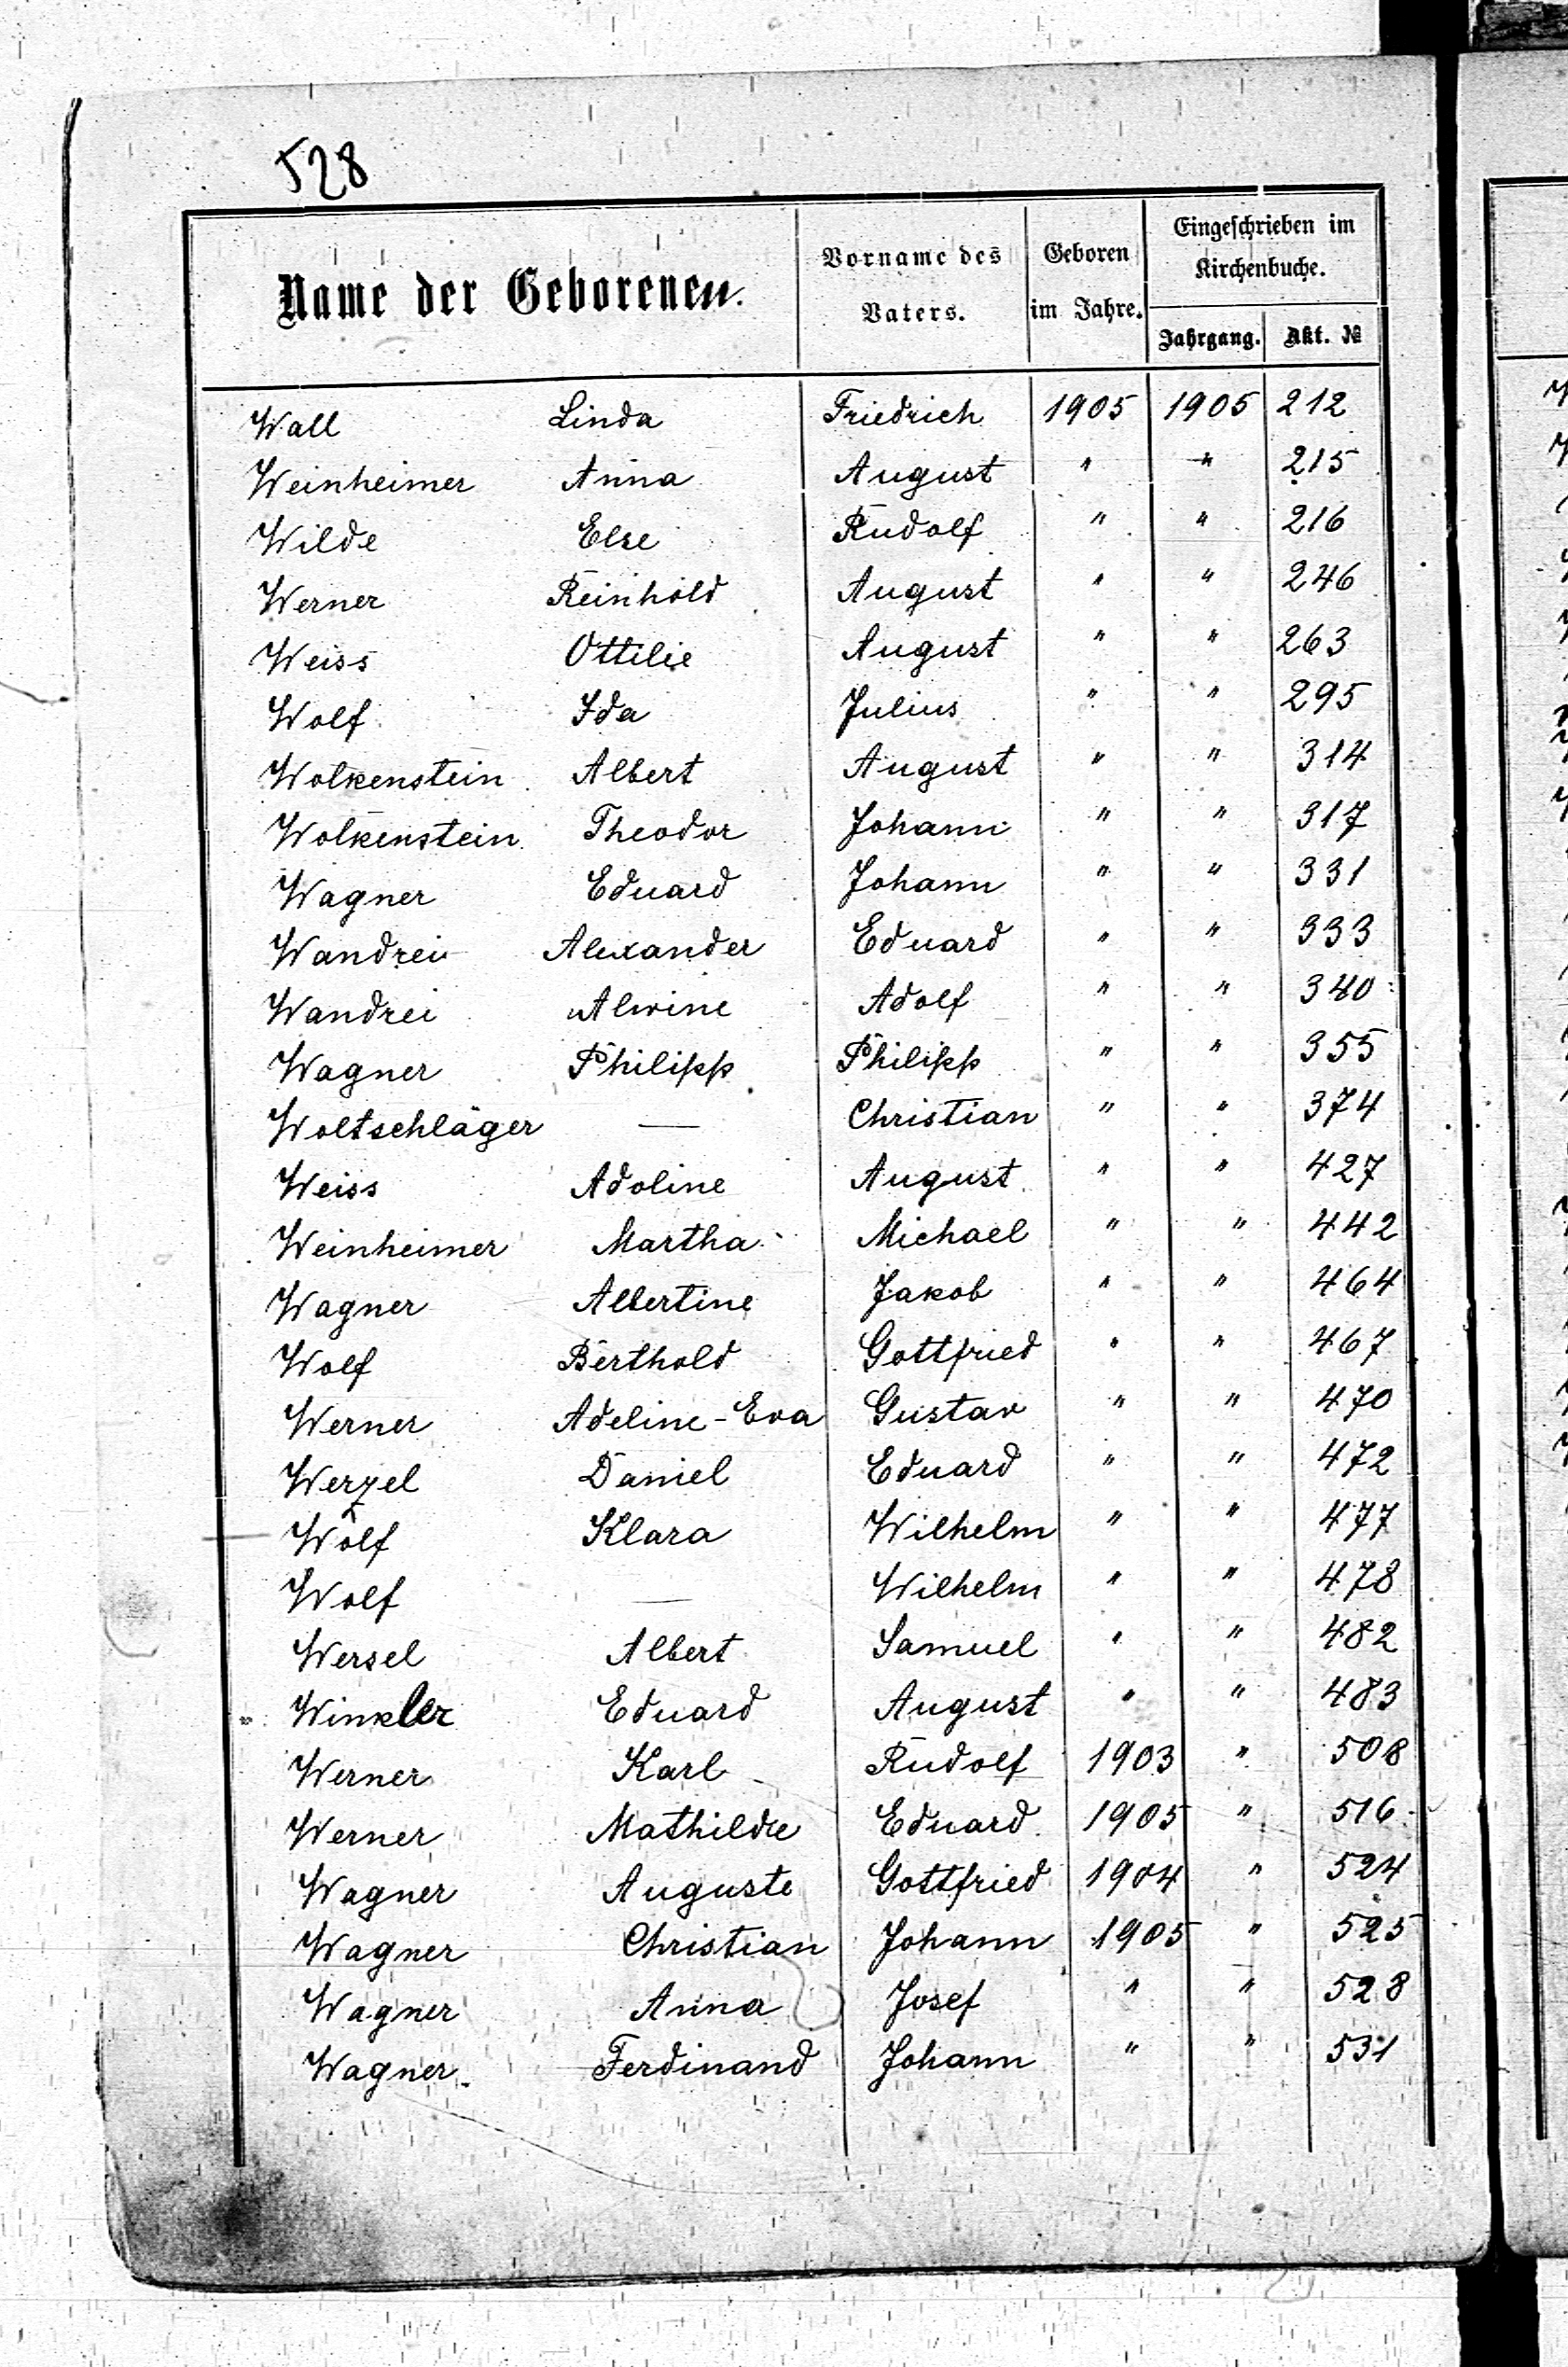 528
Name der Geborenen. Vorname des Vaters. Geboren im Jahre. Eingeschrieben im Kirchenbuche. Jahrgang. Akt. №
Wall Linda Friedrich 1905 1905 212
Weinheimer Anna August " " 215
Wilde Else Rudolf " " 216
Werner Reinhold August " " 246
Weiss Ottilie August " " 263
Wolf Ida Julius " " 295
Wolkenstein Albert August " " 314
Wolkenstein Theodor Johann " " 317
Wagner Eduard Johann " " 331
Wandrei Alexander Eduard " " 333
Wandrei Alwine Adolf " "
Wagner Philipp Philipp " " 355
Woltschläger — Christian " " 374
Weiss Adoline August " " 427
Weinheimer Martha Michael " " 442
Wagner Albertine Jakob " " 464
Wolf Berthold Gottfried " " 467
Werner Adeline-Eva Gustav " " 470
Werzel Daniel Eduard " " 472
Wolf Klara Wilhelm " " 477
Wolf — Wilhelm " " 478
Wersel Albert Samuel " " 482
Winkler Eduard August " " 483
Werner Karl Rudolf 1903 " 508
Werner Mathilde Eduard 1905 " 516
Wagner Auguste Gottfried 1904 " 524
Wagner Christian Johann 1905 " 525
Wagner Anna Josef " " 528
Wagner Ferdinand Johann " " 531